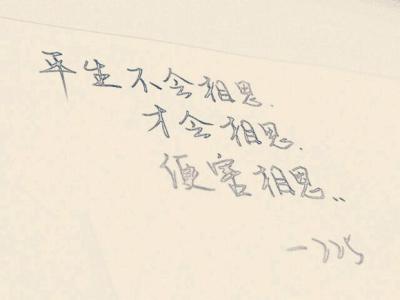 平生不会相思.
才会相思.
便害相思..